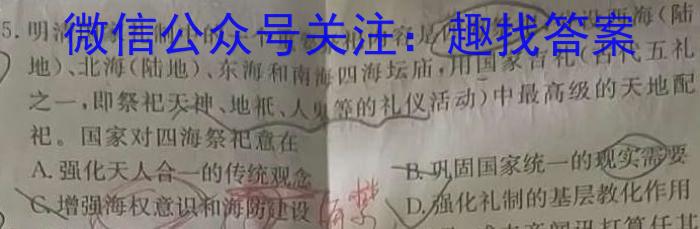 微信公众号关注：趣找答案
5.明清
西海(陆
地)、北海(陆地)、东海和南海四海坛庙,用国家吉礼(古代五礼
之一,即祭祀天神、地祇、人鬼等的礼仪活动)中最高级的天地配
祀。国家对四海祭祀意在
A.强化天人合一的传统观念
B.巩固国家统一的现实需要
C.增强海权意识和海防建设
D.强化礼制的基层教化作用
海禁